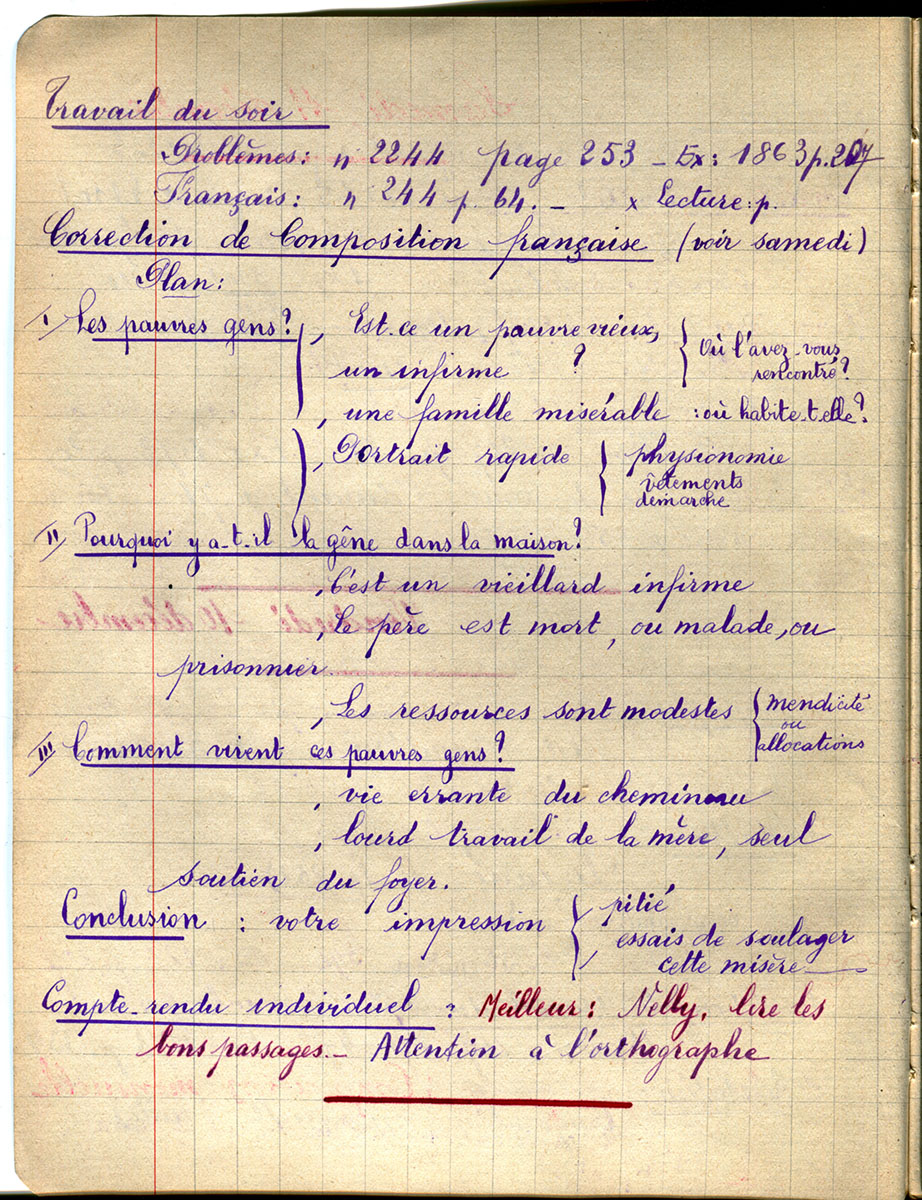 Travail du soir
Problèmes: n° 2244 page 253 - Ex: 1863 p. 207
Français: n° 244 p. 64. - x Lecture: p.
Correction de Composition française (voir samedi)
Plan:
I/ Les pauvres gens? , Est-ce un pauvre vieux, Où l'avez-vous
un infirme ? rencontré?
, une famille misérable : où habite-t-elle?
, Portrait rapide physionomie
vêtements
démarche
II/ Pourquoi y a-t-il la gêne dans la maison?
, C'est un vieillard infirme
, Le père est mort, ou malade, ou
prisonnier.
, Les ressources sont modestes mendicité
ou
allocations
III/ Comment vivent ces pauvres gens?
, vie errante du chemineau
, lourd travail de la mère, seul
soutien du foyer.
Conclusion : votre impression , pitié
, essais de soulager
cette misère
Compte-rendu individuel : Meilleur: Nelly, lire les
bons passages. - Attention à l'orthographe